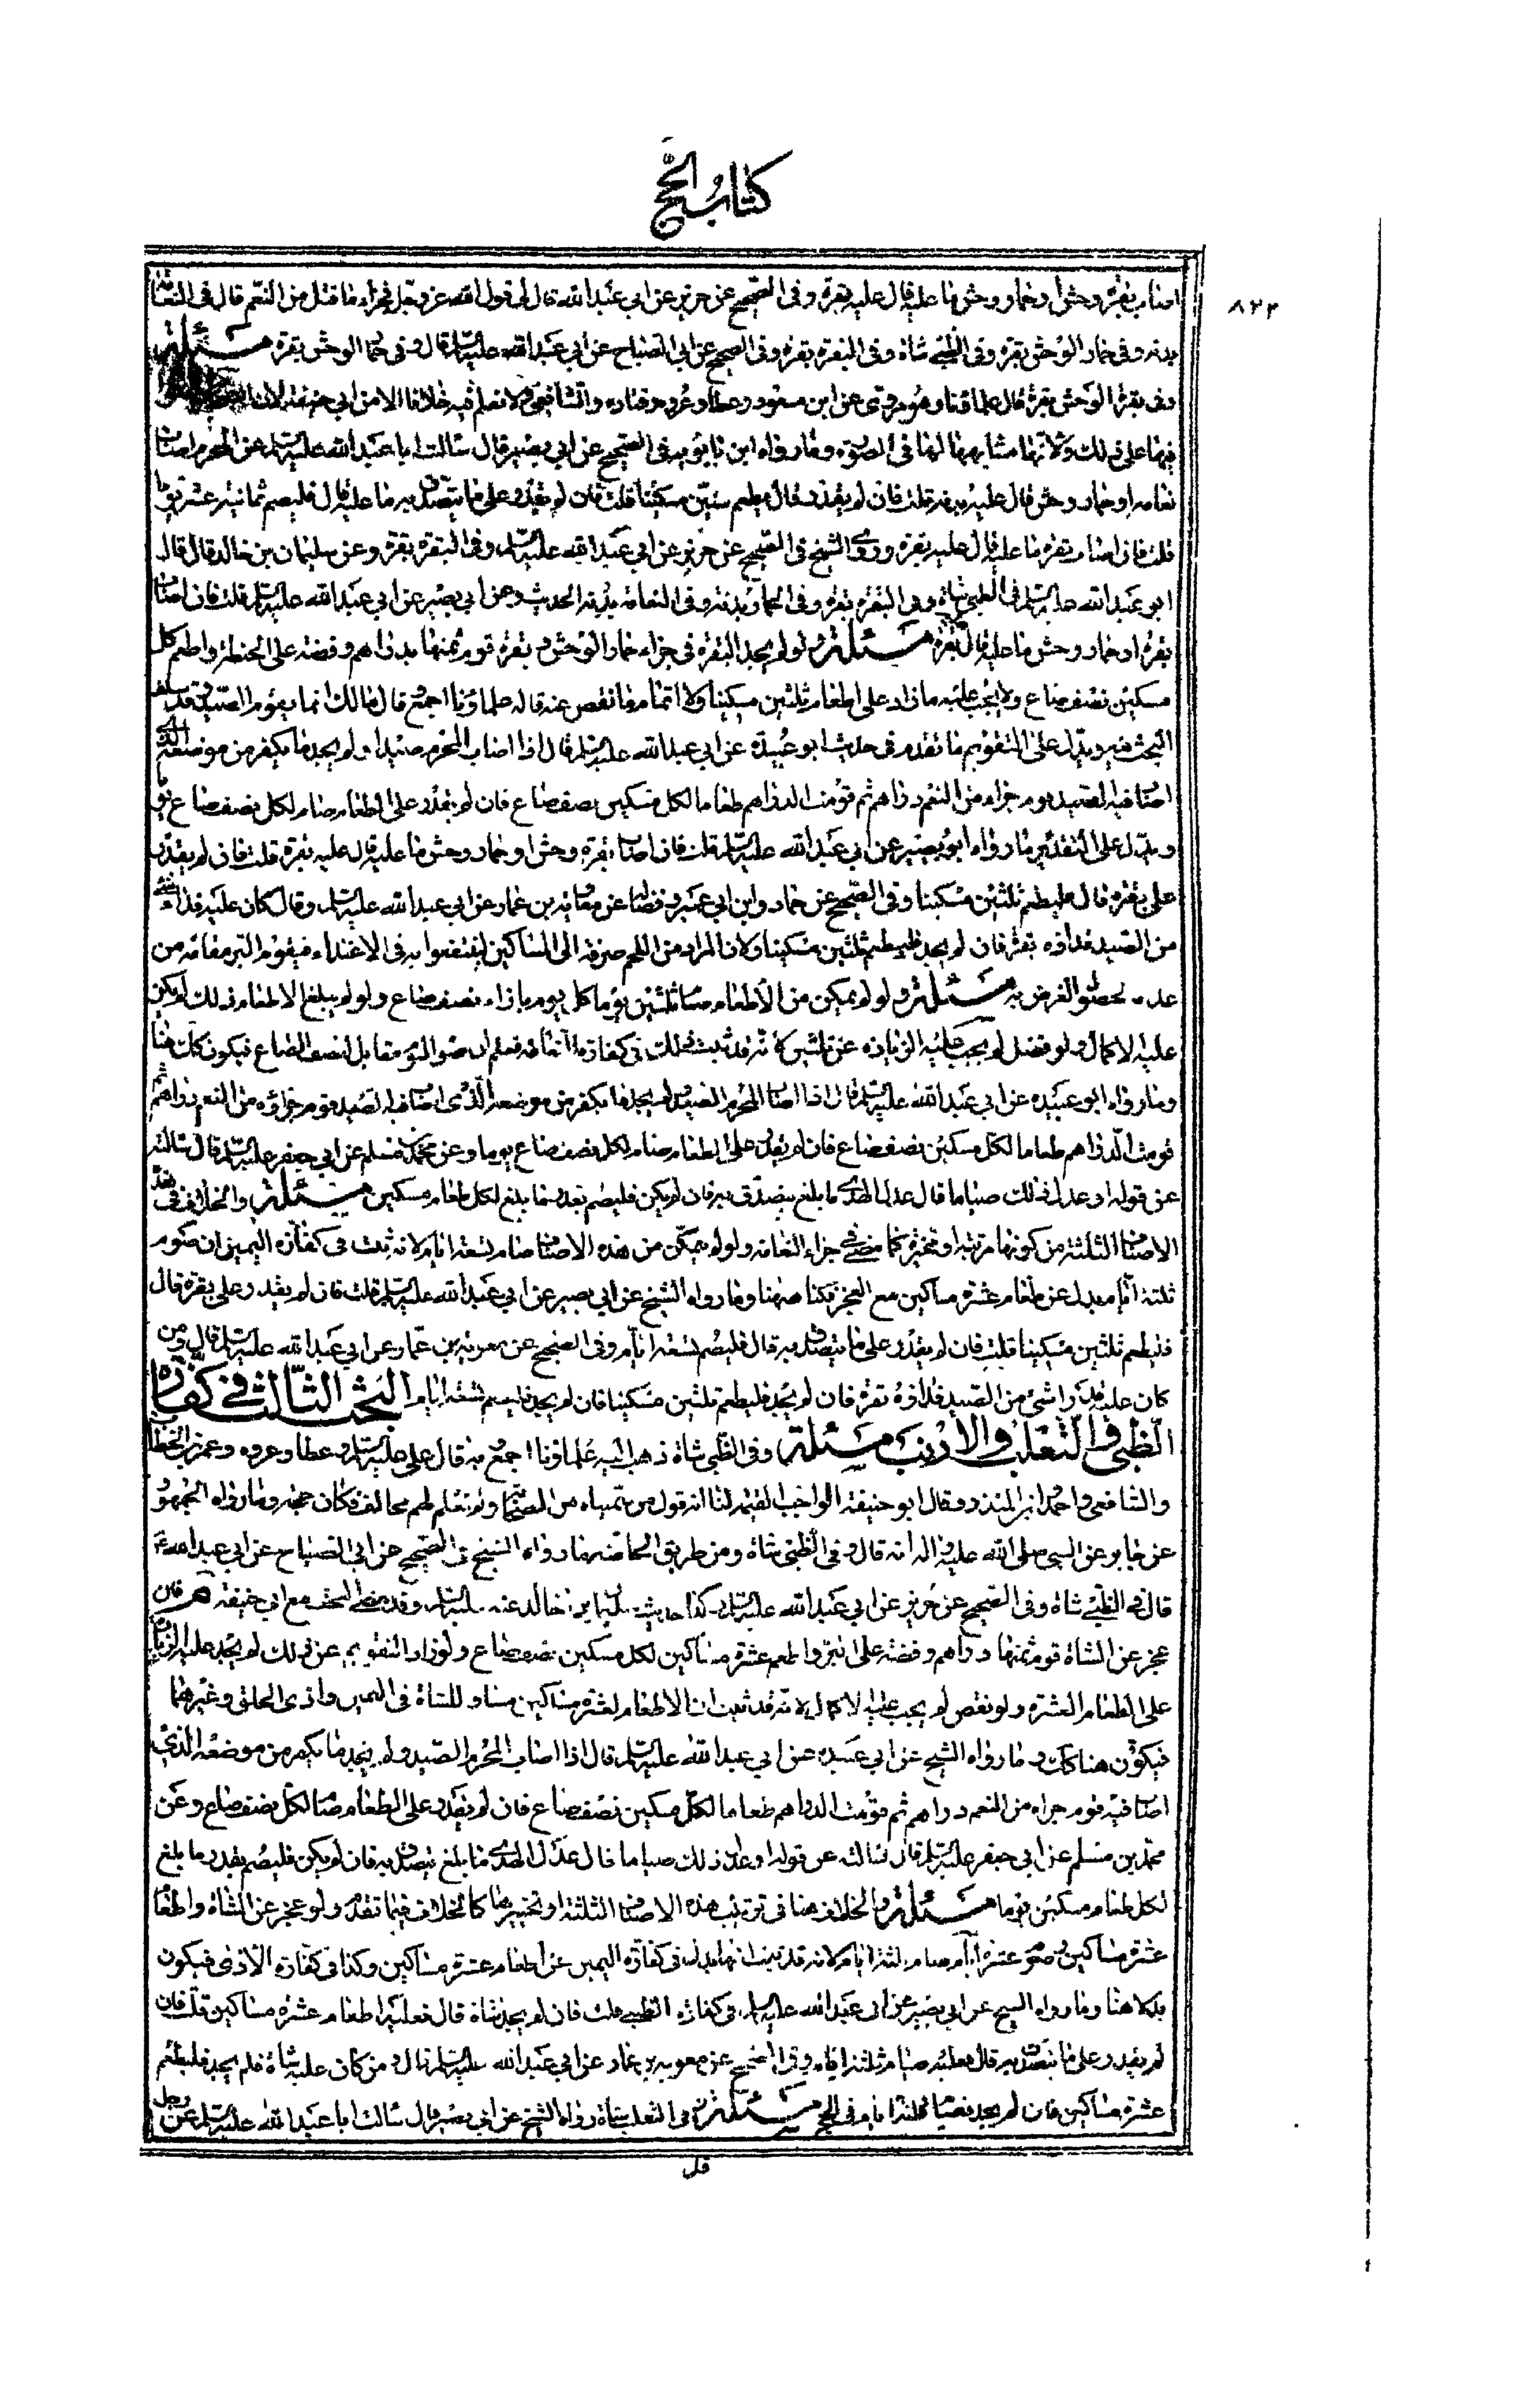 كتاب الحج
٨٢٢
اصاب بقرة وحش او حمار وحش ما عليه قال عليه بقرة وفى الصحيح عن حريز عن ابي عبد الله قال في قول الله عز وجل فجزاء ما قتل من النعم قال فى النعامة
بدنة وفى حمار الوحش بقرة وفى الظبي شاة وفى البقرة بقرة وفى الصحيح عن ابي الصباح عن ابي عبد الله عليه السلام قال وفى حمار الوحش بقرة مسئلة
وفى بقرة الوحش بقرة قال علماؤنا وهو مروى عن ابن مسعود وعطا وعروة وقتادة والشافعى ولا نعلم فيه خلافا الا من ابي حنيفة لان
فيها على ذلك ولانها مشابهة لها فى الصورة وما رواه ابن بابويه فى الصحيح عن ابي بصير قال سالت ابا عبد الله عليه السلام عن المحرم اصاب
نعامة او حمار وحش قال عليه بدنة قلت فان لم يقدر قال يطعم ستين مسكينا قلت فان لم يقدر على ما يتصدق به ما عليه قال فليصم ثمانية عشر يوما
قلت فان اصاب بقرة ما عليه قال عليه بقرة وروى الشيخ فى الصحيح عن حريز عن ابي عبد الله عليه السلام وفى البقرة بقرة وعن سليمان بن خالد قال قال
ابو عبد الله عليه السلام فى الظبي شاة وفى البقرة بقرة وفى الحمار بدنة وفى النعامة بدنة الحديث وعن ابي بصير عن ابي عبد الله عليه السلام قلت فان اصاب
بقرة او حمار وحش ما عليه قال بقرة مسئلة ولو لم يجد البقرة فى جزاء حمار الوحش و بقرة قوم ثمنها بدراهم وفضه على الحنطة واطعم كل
مسكين نصف صاع ولا يجب عليه ما زاد على اطعام ثلثين مسكينا ولا اتمام ما نقص عنه قاله علماؤنا اجمع قال مالك انما يقوم الصيد وقد سلف
البحث فيه ويدل على التقويم ما تقدم فى حديث ابو عبيدة عن ابي عبد الله عليه السلام قال اذا اصاب المحرم صيدا ولم يجد ما يكفر من موضعه الذى
اصاب فيه الصيد قوم جزاءه من النعم دراهم ثم قومت الدراهم طعاما لكل مسكين نصف صاع فان لم يقدر على الطعام صام لكل نصف صاع يوما
ويدل على التقدير ما رواه ابو بصير عن ابي عبد الله عليه السلام قلت فان اصاب بقرة وحش او حمار وحش ما عليه قال عليه بقرة قلت فان لم يقدر
على بقرة قال فليطعم ثلثين مسكينا وفى الصحيح عن حماد وابن ابي عمير وفضالة عن معاوية بن عمار عن ابي عبد الله عليه السلام وقال كان عليه فداء شئ
من الصيد فداؤه بقرة فان لم يجد فليطعم ثلثين مسكينا ولان المراد من اللحم صرفه الى المساكين لينتفعوا به فى الاغتذاء فيقوم البر مقامه من
عدمه لحصول الغرض به مسئلة ولو لم يتمكن من الاطعام صام ثلثين يوما كل يوم بازاء نصف صاع ولو لم يبلغ الاطعام ذلك لم يكن
عليه الاكمال ولو فضل لم يجب عليه الزيادة عن ثلثين لانه قد ثبت ذلك فى كفارة النعامة فعلم ان صوم اليوم مقابل لنصف الصاع فيكون كذلك هنا
وما رواه ابو عبيده عن ابي عبد الله عليه السلام قال اذا اصاب المحرم الصيد ولم يجد ما يكفر من موضعه الذى اصاب فيه الصيد قوم جزاؤه من النعم دراهم ثم
قومت الدراهم طعاما لكل مسكين نصف صاع فان لم يقدر على الطعام صام لكل نصف صاع يوما وعن محمد بن مسلم عن ابي جعفر عليه السلام قال سالته
عن قوله او عدل ذلك صياما قال عدل الهدى ما بلغ يتصدق به فان لم يكن فليصم بقدر ما بلغ لكل طعام مسكين مسئلة والخلاف فى هذه
الاصناف الثلثة من كونها مرتبة او مخيرة كما مضى فى جزاء النعامة ولو لم يتمكن من هذه الاصناف صام تسعة ايام لانه ثبت فى كفارة اليمين ان صوم
ثلثة ايام بدل عن طعام عشرة مساكين مع العجز فكذا هيهنا وما رواه الشيخ عن ابي بصير عن ابي عبد الله عليه السلام قلت فان لم يقدر على بقرة قال
فليطعم ثلثين مسكينا قلت فان لم يقدر على ما يتصدق به قال فليصم تسعة ايام وفى الصحيح عن معوية بن عمار عن ابي عبد الله عليه السلام قال ومن
كان عليه فداء شئ من الصيد فداؤه بقرة فان لم يجد فليطعم ثلثين مسكينا فان لم يجد فليصم تسعة ايام البحث الثالث فى كفارة
الظبي والثعلب والارنب مسئلة وفى الظبي شاة ذهب اليه علماؤنا اجمع وبه قال على عليه السلام وعطا وعروه وعمر بن الخطاب
والشافعى واحمد ابن المنذر وقال ابو حنيفة الواجب القيمة لنا انه قول من سميناه من الصحابة ولم نعلم لهم مخالف فكان حجة وما رواه الجمهور
عن جابر عن النبي صلى الله عليه واله انه قال وفى الظبي شاة ومن طريق الخاصة ما رواه الشيخ فى الصحيح عن ابي الصباح عن ابي عبد الله ع
قال فى الظبي شاة وفى الصحيح عن حريز عن ابي عبد الله عليه السلام وكذا حديث سليمان بن خالد عنه عليه السلام وقد مضى البحث مع ابي حنيفة فان
عجز عن الشاة قوم ثمنها دراهم وفضه على البر واطعم عشرة مساكين لكل مسكين نصف صاع ولو زاد التقويم عن ذلك لم يجب عليه الزيادة
على اطعام العشرة ولو نقص لم يجب عليه الاكمال لانه قد ثبت ان الاطعام لعشرة مساكين مساو للشاة فى اليمين واذى الحلق وغيرهما
فيكون هنا كذلك وما رواه الشيخ عن ابي عبيده عن ابي عبد الله عليه السلام قال اذا اصاب المحرم الصيد ولم يجد ما يكفر من موضعه الذى
اصاب فيه قوم جزاه من النعم دراهم ثم قومت الدراهم طعاما لكل مسكين نصف صاع فان لم يقدر على الطعام صام لكل نصف صاع وعن
محمد بن مسلم عن ابي جعفر عليه السلام قال سالته عن قوله او عدل ذلك صياما قال عدل الهدى ما بلغ يتصدق به فان لم يكن فليصم بقدر ما بلغ
لكل طعام مسكين يوما مسئلة والخلاف هنا فى ترتيب هذه الاصناف الثلثة او تخييرها كالخلاف فيما تقدم ولو عجز عن الشاة واطعام
عشرة مساكين وصوم عشرة ايام صام ثلثة ايام لانه قد ثبت انها بدل فى كفارة اليمين عن اطعام عشرة مساكين وكذا فى كفارة الاذى فيكون
بدلا هنا وما رواه الشيخ عن ابي بصير عن ابي عبد الله عليه السلام فى كفارة الظبي قلت فان لم يجد شاة قال فعليه اطعام عشرة مساكين قلت فان
لم يقدر على ما يتصدق به قال فعليه صيام ثلثة ايام وفى الصحيح عن معوية بن عمار عن ابي عبد الله عليه السلام قال ومن كان عليه شاة فلم يجد فليطعم
عشرة مساكين فان لم يجد فصيام ثلثة ايام فى الحج مسئلة وفى الثعلب شاة رواه الشيخ عن ابي بصير قال سالت ابا عبد الله عليه السلام عن رجل
قتل